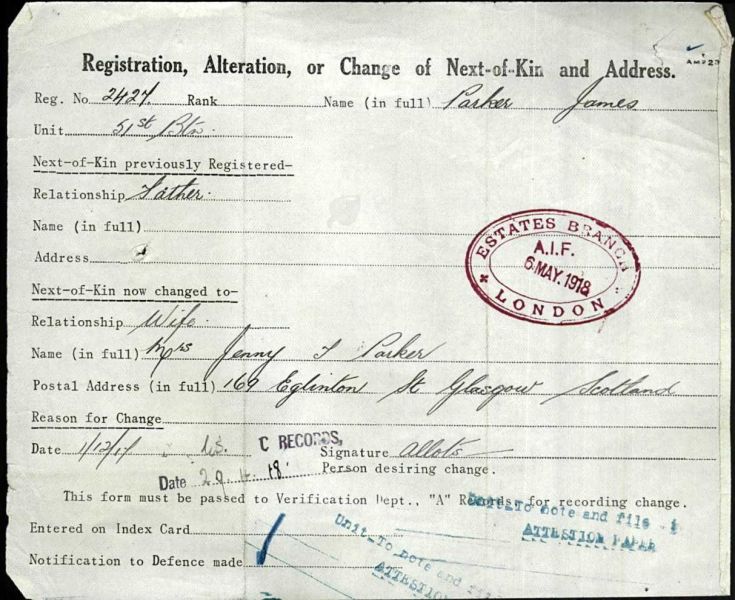 AMF 23
Registration, Alteration, or Change of Next-of-Kin and Address.
Reg. No. 2427 Rank Name (in full) Parker James
Unit 51st Btn.
Next-of-Kin previously Registered-
Relationship Father.
Name (in full)
Address
ESTATES BRANCH
A.I.F.
6 MAY. 1918
LONDON
Next-of-Kin now changed to-
Relationship Wife.
Name (in full) Mrs Jenny Parker
Postal Address (in full) 169 Eglinton St Glasgow Scotland
Reason for Change
Date 1/12/17 C RECORDS, Signature Allots
Date 29. 4. 18. Person desiring change.
This form must be passed to Verification Dept., "A" Records for recording change.
Unit-To note and file
ATTESTION PAPER
Entered on Index Card
Unit-To note and file
ATTESTION
Notification to Defence made